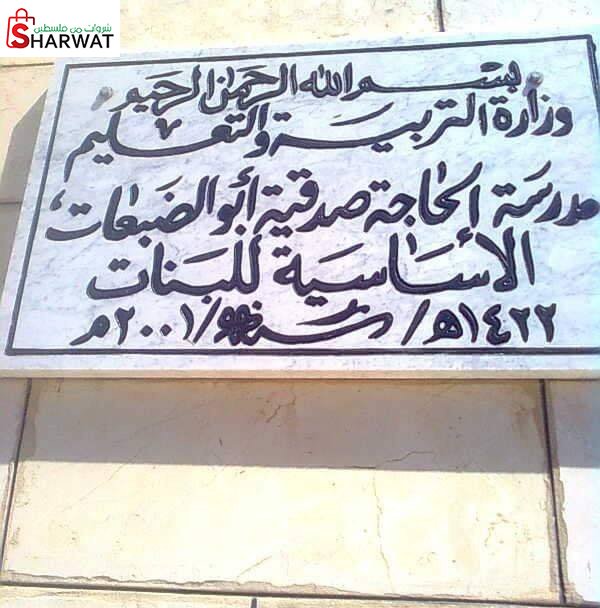 شروات من فلسطين
SHARWAT
بسم الله الرحمن الرحيم
وزارة التربية والتعليم
مدرسة الحاجة صدقية أبو الضبعات
الأساسية للبنات
١٤٢٢هـ / ٢٠٠١م